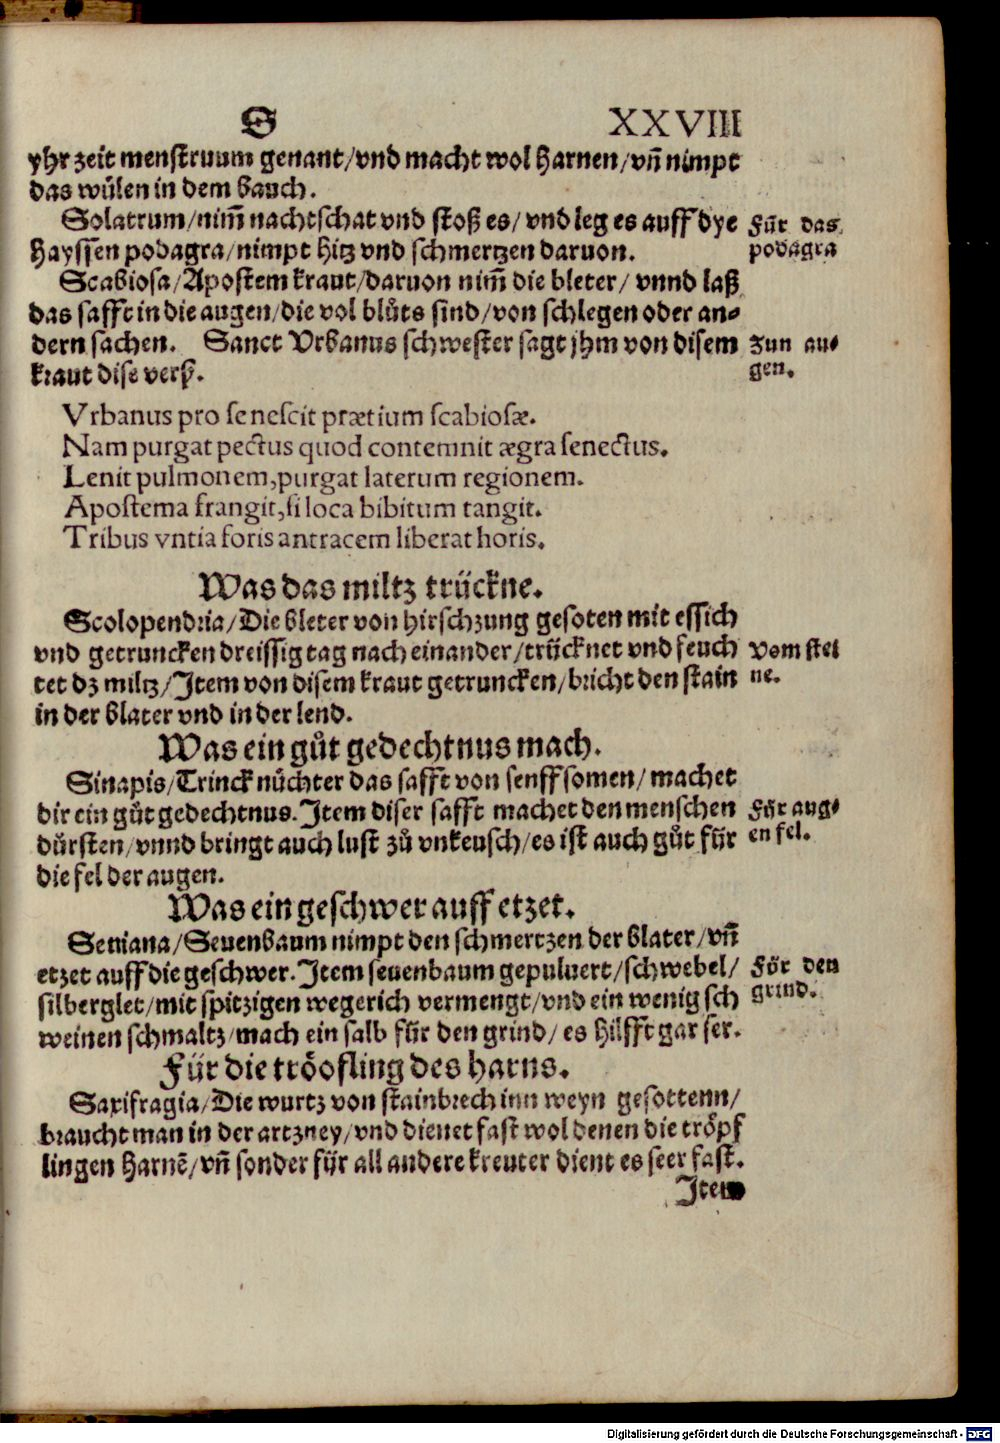 S XXVIII
yhr zeit menstruum genant/vnd macht wol harnen/vñ nimpt
das wůlen in dem bauch.
Solatrum/nim̄ nachtschat vnd stoß es/ vnd leg es auff dye
hayssen podagra/nimpt hitz vnd schmertzen daruon.
Für das
podagra
Scabiosa/Apostem kraut/daruon nim̄ die bleter/ vnnd laß
das safft in die augen/die vol blůts sind/von schlegen oder an⸗
dern sachen. Sanct Vrbanus schwester sagt jhm von disem
kraut dise verß.
zun au⸗
gen.
Vrbanus pro se nescit prætium scabiosæ.
Nam purgat pectus quod contemnit ægra senectus.
Lenit pulmonem,purgat laterum regionem.
Apostema frangit,si loca bibitum tangit.
Tribus vntia foris antracem liberat horis.
Was das miltz trückne.
Scolopendria/Die bleter von hirschzung gesoten mit essich
vnd getruncken dreissig tag nach einander/trücknet vnd feuch
tet dz miltz/Item von disem kraut getruncken/bricht den stain
in der blater vnd in der lend.
Vom stei
ne.
Was ein gůt gedechtnus mach.
Sinapis/Trinck nůchter das safft von senffsomen/ machet
dir ein gůt gedechtnus. Item diser safft machet den menschen
dürsten/vnnd bringt auch lust zů vnkeusch/es ist auch gůt für
die fel der augen.
Für aug⸗
en fel.
Was ein geschwer auff etzet.
Seniana/Seuenbaum nimpt den schmertzen der blater/vñ
etzet auff die geschwer. Item seuenbaum gepuluert/schwebel/
silberglet/mit spitzigen wegerich vermengt/vnd ein wenig sch
weinen schmaltz/mach ein salb für den grind/ es hilfft gar ser.
För den
grind.
Für die tröofling des harns.
Saxifragia/Die wurtz von stainbrech inn weyn gesottenn/
braucht man in der artzney/vnd dienet fast wol denen die tröpf
lingen harnē/vñ sonder für all andere kreuter dient es seer fast.
Item
Digitalisierung gefördert durch die Deutsche Forschungsgemeinschaft - DFG